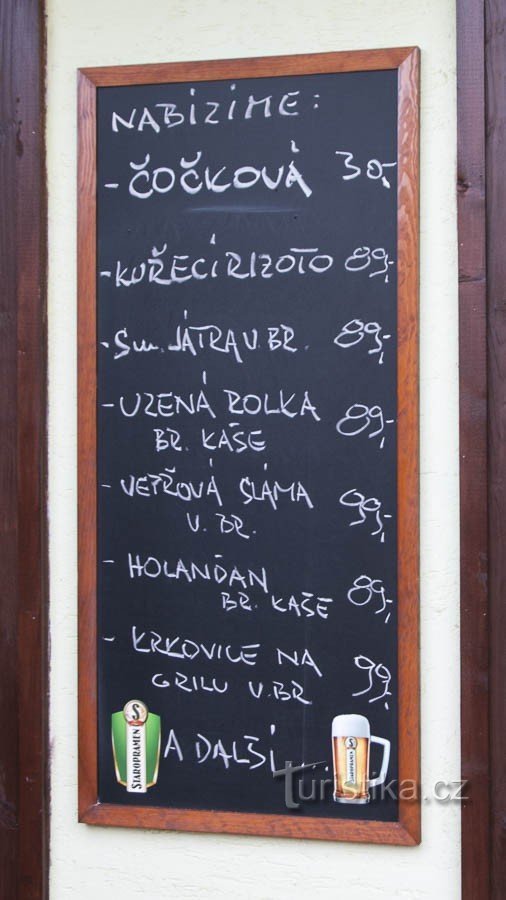 NABIZÍME:
- ČOČKOVÁ 30,-
- KUŘECÍ RIZOTO 89,-
- Sm. JÁTRA V. BR. 89,-
- UZENÁ ROLKA 89,-
BR. KAŠE
- VEPŘOVÁ SLÁMA 99,-
V. BR.
- HOLANDAN
BR. KAŠE 89,-
- KRKOVICE NA
GRILU V. BR 99,-
A DALŠÍ...
S
STAROPRAMEN
S
STAROPRAMEN
Turistika.cz